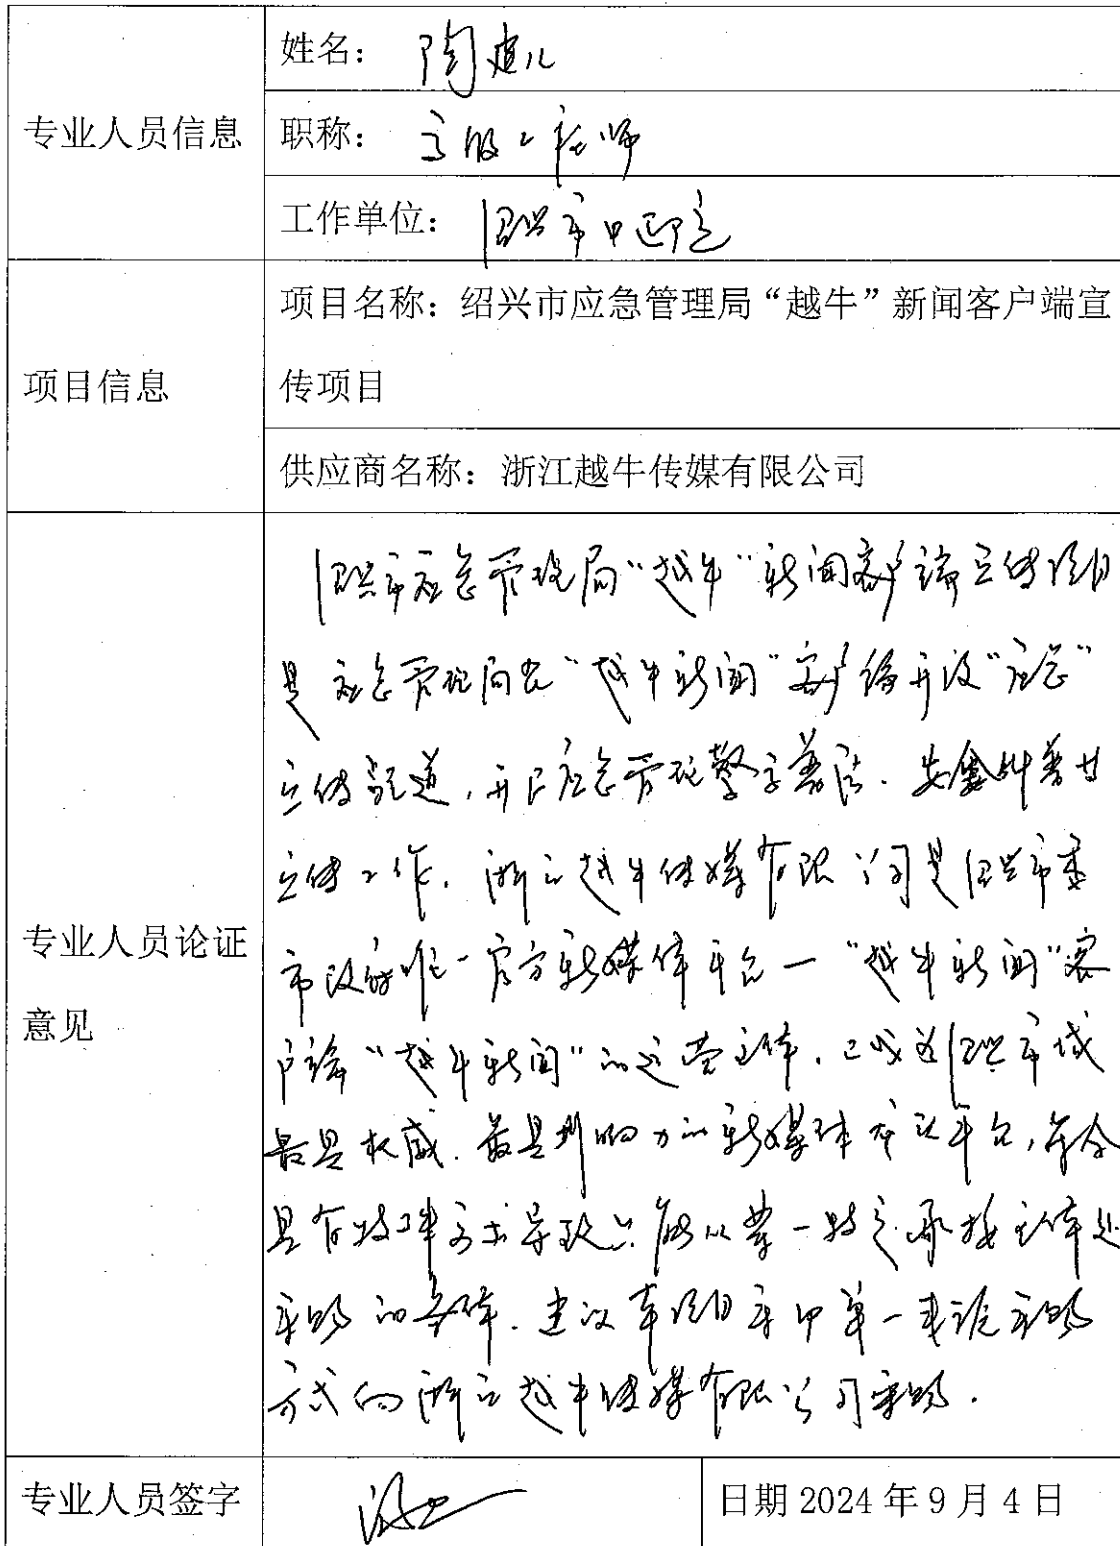 专业人员信息
姓名：陶建儿
职称：高级工程师
工作单位：绍兴市中医院
项目信息
项目名称：绍兴市应急管理局“越牛”新闻客户端宣
传项目
供应商名称：浙江越牛传媒有限公司
专业人员论证
意见
绍兴市应急管理局“越牛”新闻客户端宣传项目
是应急管理局在“越牛新闻”客户端开设“应急”
宣传频道，开展应急管理警示普法、安全科普等
宣传工作。浙江越牛传媒有限公司是绍兴市委
市政府唯一官方新媒体平台一“越牛新闻”客
户端“越牛新闻”的运营主体，已成为绍兴市域
最具权威、最具影响力的新媒体发认平台，符合
具有特殊要求导致只能从某一特定承接主体处
采购的条件。建议本项目采用单一来源采购
方式向浙江越牛传媒有限公司采购。
专业人员签字
日期 2024 年 9 月 4 日